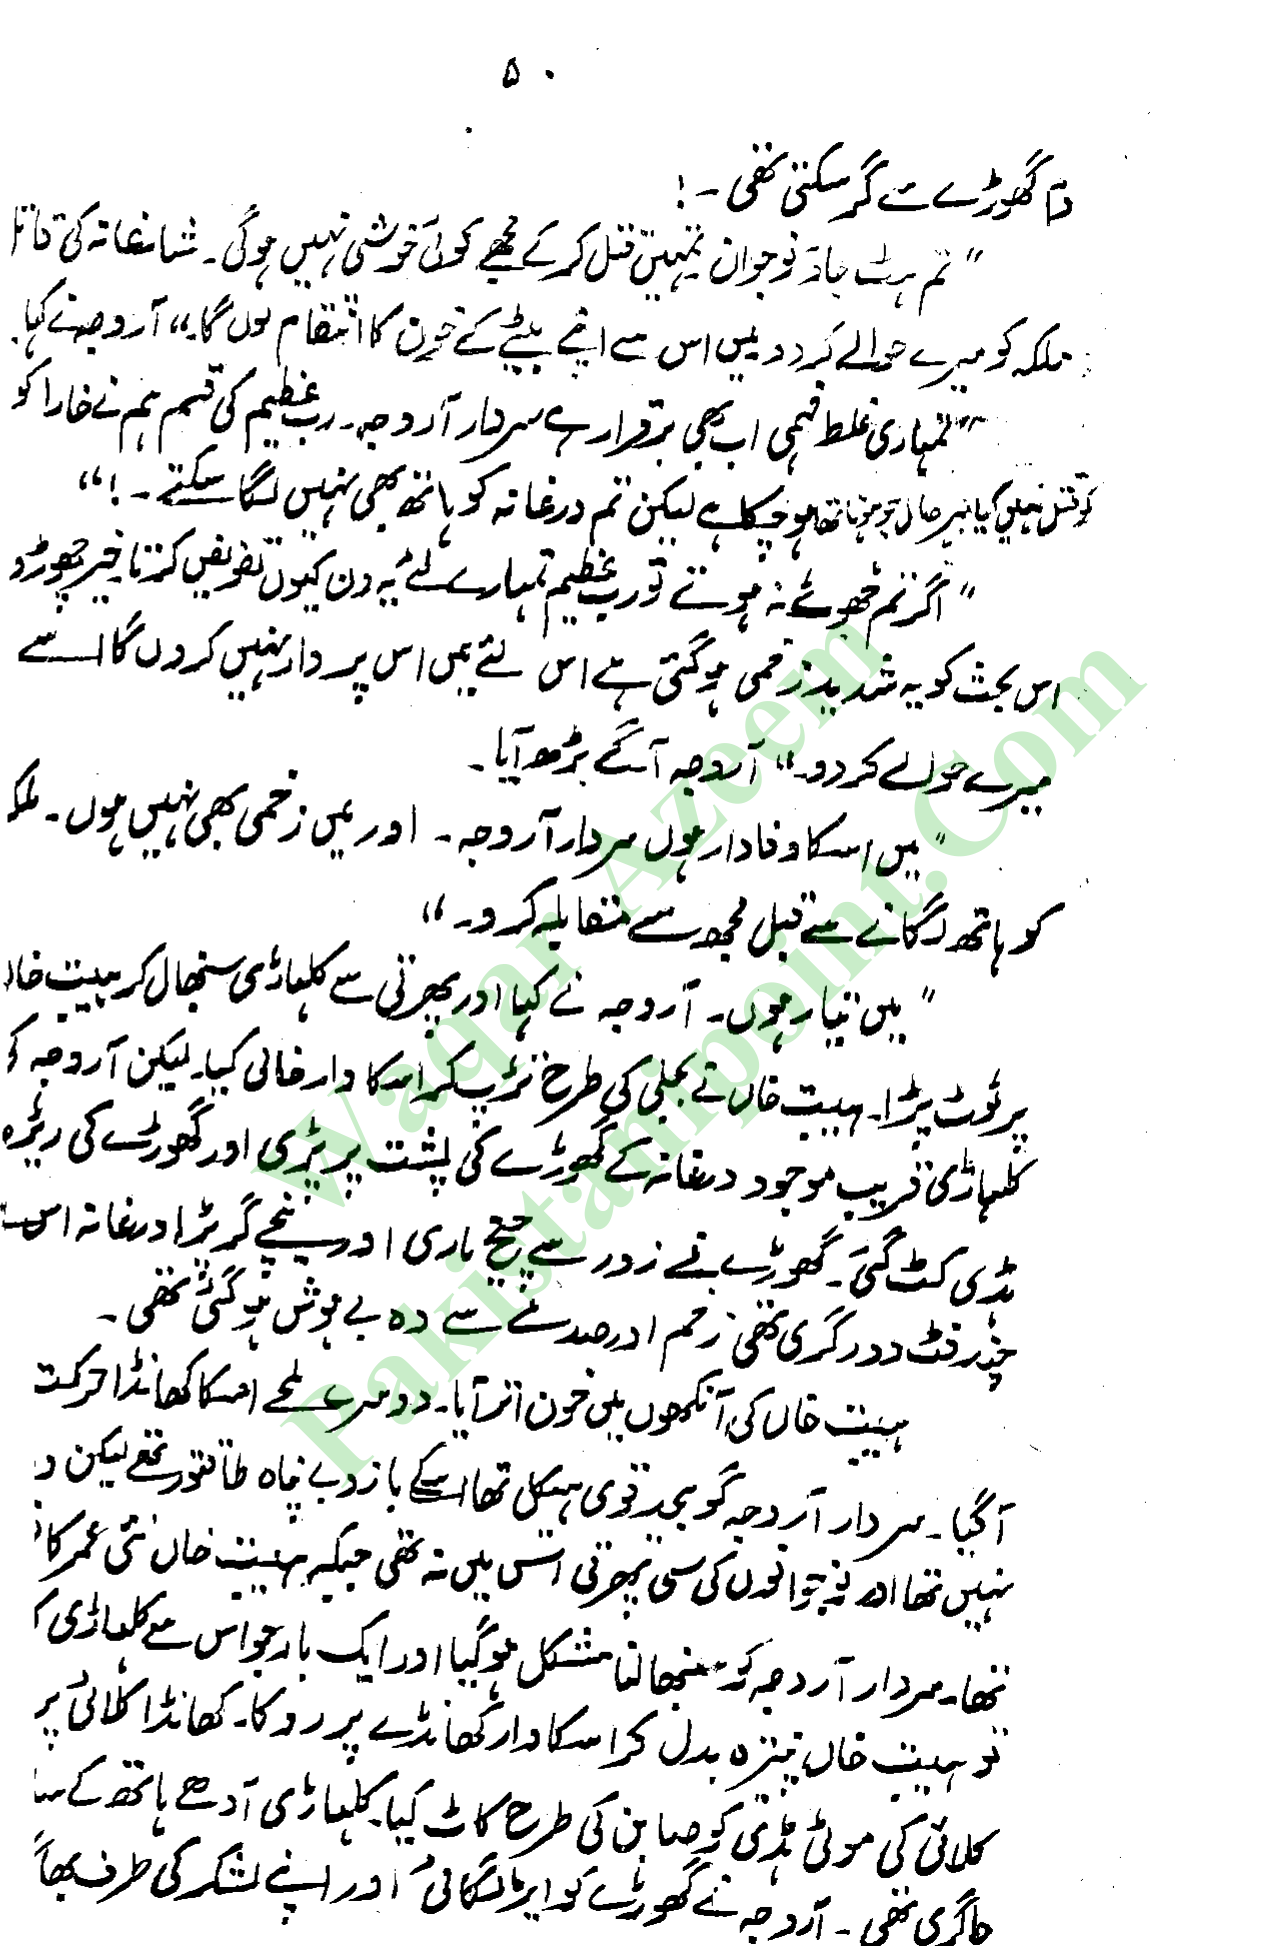 ۵۰
دم گھوڑے سے گر سکتی تھی ۔!
" تم ہٹ جاؤ نوجوان تمہیں قتل کر کے مجھے کوئی خوشی نہیں ہوگی۔ شانغانہ کی قاتل
ملکہ کو میرے حوالے کر دو میں اس سے اپنے بیٹے کے خون کا انتقام لوں گا۔" آروجہ نے کہا۔
"تمہاری غلط فہمی اب بھی برقرار ہے سردار آروجہ۔ رب عظیم کی قسم ہم نے خارا کو
کو قتل نہیں کیا بہر حال جو ہونا تھا ہو چکا ہے لیکن تم درغانہ کو ہاتھ بھی نہیں لگا سکتے ۔!"
" اگر تم جھوٹے نہ ہوتے تو رب عظیم تمہارے لئے یہ دن کیوں تفویض کرتا۔ خیر چھوڑو
اس بحث کو یہ شدید زخمی ہو گئی ہے اس لئے میں اس پر وار نہیں کروں گا اسے
میرے حوالے کر دو۔" آروجہ آگے بڑھ آیا۔
" میں اسکا وفادار ہوں سردار آروجہ ۔ اور میں زخمی بھی نہیں ہوں ۔ ملکہ
کو ہاتھ لگانے سے قبل مجھ سے مقابلہ کرو۔"
" میں تیار ہوں۔ آروجہ نے کہا اور پھرتی سے کلہاڑی سنبھال کر ہیبت خاں
پر ٹوٹ پڑا۔ ہیبت خاں نے بجلی کی طرح تڑپ کر اسکا وار خالی کیا۔ لیکن آروجہ کی
کلہاڑی قریب موجود درغانہ کے گھوڑے کی پشت پر پڑی اور گھوڑے کی ریڑھ
ہڈی کٹ گئی۔ گھوڑے نے زور سے چیخ ماری اور نیچے گر پڑا درغانہ اس سے
چند فٹ دور گری تھی زخم اور صدمے سے وہ بے ہوش ہو گئی تھی ۔
ہیبت خاں کی آنکھوں میں خون اتر آیا۔ دوسرے لمحے اسکا کھانڈا حرکت
آگیا ۔ سردار آروجہ گو بیحد قوی ہیکل تھا اسکے بازو بے پناہ طاقتور تھے لیکن و
نہیں تھا اور نوجوانوں کی سی پھرتی اس میں نہ تھی جبکہ ہیبت خاں نئی عمر کا
تھا۔ سردار آروجہ کو سنبھالنا مشکل ہو گیا اور ایک بار جو اس نے کلہاڑی
تو ہیبت خاں پینترہ بدل کر اسکا وار کھانڈے پر روکا۔ کھانڈا کلائی پر
کلائی کی موٹی ہڈی کو صابن کی طرح کاٹ گیا۔ کلہاڑی آدھے ہاتھ کے سا
جا گری تھی ۔ آروجہ نے گھوڑے کو ایڑ لگائی اور اپنے لشکر کی طرف بھا
Waqar Azeem
Pakistanipoint.Com